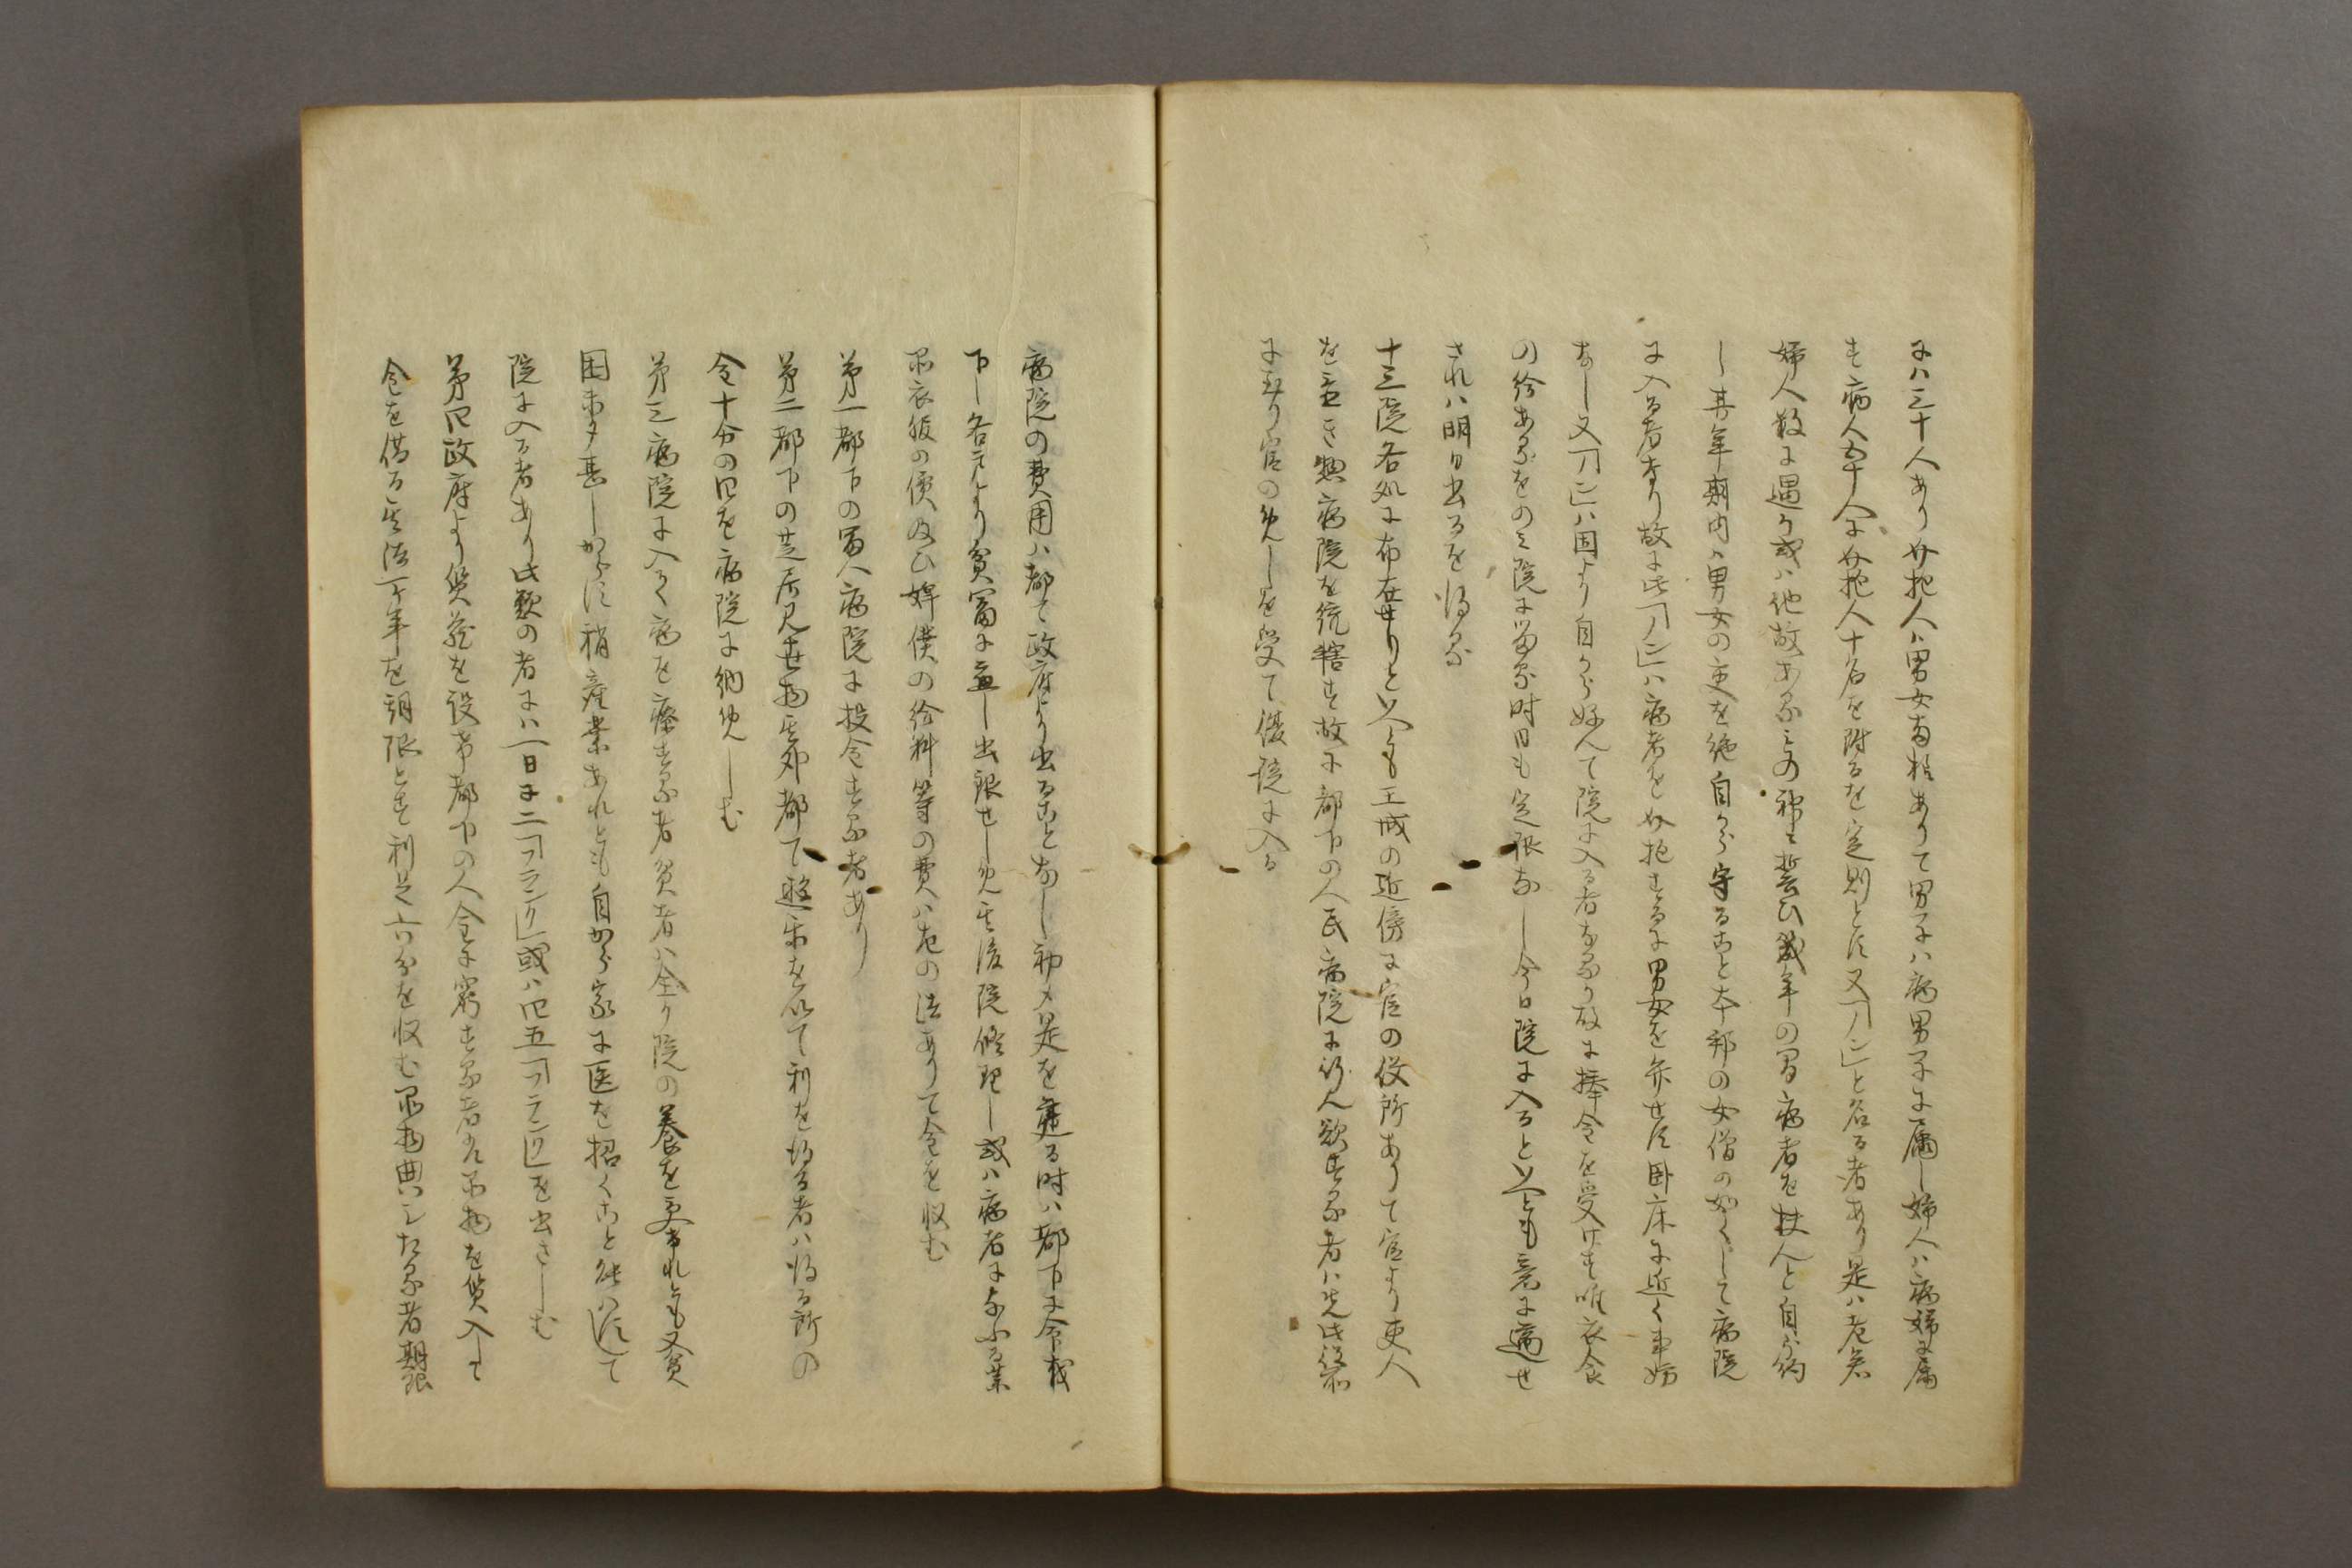 にハ三十人あり介抱人ハ男女両様ありて男子ハ病男子に属し婦人ハ病婦に属
す病人五十人に介抱人十名を附るを定則とす又「ノン」と名る者あり是ハ老若
婦人数に遇か或ハ他故あるときの神に誓ひ幾年の間病者を扶んと自から約
し其年期内ハ男女の交を絶自から守ること本邦の女僧の如くして病院
に入る者なり故に此「ノン」ハ病者を介抱するに男女を弁せす臥床に近く事妨
なし又「ノン」ハ固より自から好んて院に入る者なるか故に捧金を受けす唯衣食
の給あるをのみ院に留る時日も定限なし今日院に入ると云とも意に適せ
されハ明日出るを得る
十三院各処に布在せりと云とも王城の近傍に官の役所ありて官より吏人
を置き惣病院を統轄す故に都下の人民病院に行んと欲する者ハ先此役所
に至り官の免しを受て後院に入る
病院の費用ハ都て政府より出ることなし初メ是を建る時ハ都下に令を
下し各々より貧富に応し出銀せしめ其後院修理し或ハ病者に与ふる薬
品衣服の価及ひ婢僕の給料等の費ハ左の法ありて金を収む
第一都下の富人病院に投金する者あり
第二都下の芝居見せ物其外都て遊楽を以て利を得る者ハ得る所の
金十分の四を病院に納めしむ
第三病院に入て病を療する者貧者ハ全く院の養を受れとも又貧
困未タ甚しからす稍産業あれとも自から家に医を招くこと能ハすして
院に入る者あり此類の者にハ一日に二「フランク」或ハ四五「フランク」を出さしむ
第四政府より質蔵を設け都下の人金に窮する者ハ品物を質入して
金を借る其法一ケ年を期限とす利足六分を収む品物典したる者期限